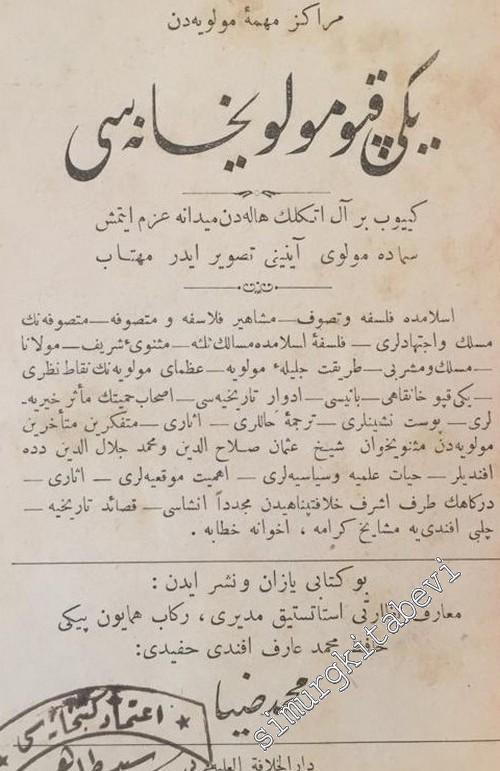 مراكز مهمهٔ مولويه‌دن
يكى قپو مولويخانه‌سى
كييوب بر آل اتكلك هاله‌دن ميدانه عزم ايتمش
سماده مولوى آيينى تصوير ايدر مهتاب
اسلامده فلسفه وتصوف — مشاهير فلاسفه و متصوفه — متصوفه‌نك
مسلك واجتهادلرى — فلسفهٔ اسلامده مسالك ثلثه — مثنوىء شريف — مولانا
— مسلك ومشربى — طريقت جليلهٔ مولويه — عظماى مولويه‌نك نقاط نظرى
— يكى قپو خانقاهى — بانيسى — ادوار تاريخيه‌سى — اصحاب حميتك مأثر خيريه‌-
لرى — پوست نشينلرى — ترجمهٔ حاللرى — آثارى — متفكرين متأخرين
مولويه‌دن مثنويخوان شيخ عثمان صلاح الدين ومحمد جلال الدين دده
افنديلر — حيات علميه وسياسيه‌لرى — اهميت موقعيه‌لرى — آثارى —
دركاهك طرف اشرف خلافتپناهيدن مجدداً انشاسى — قصائد تاريخيه —
چلبى افندى‌يه مشايخ كرامه ، اخوانه خطابه .
بو كتابى يازان ونشر ايدن :
معارف نظارتى استاتستيق مديرى ، ركاب همايون پيكى
حافظ محمد عارف افندى حفيدى :
محمد ضيا
اعتماد كتبخانه‌سى
سيد طاهر
دار الخلافة العليه
simurgkitabevi.com